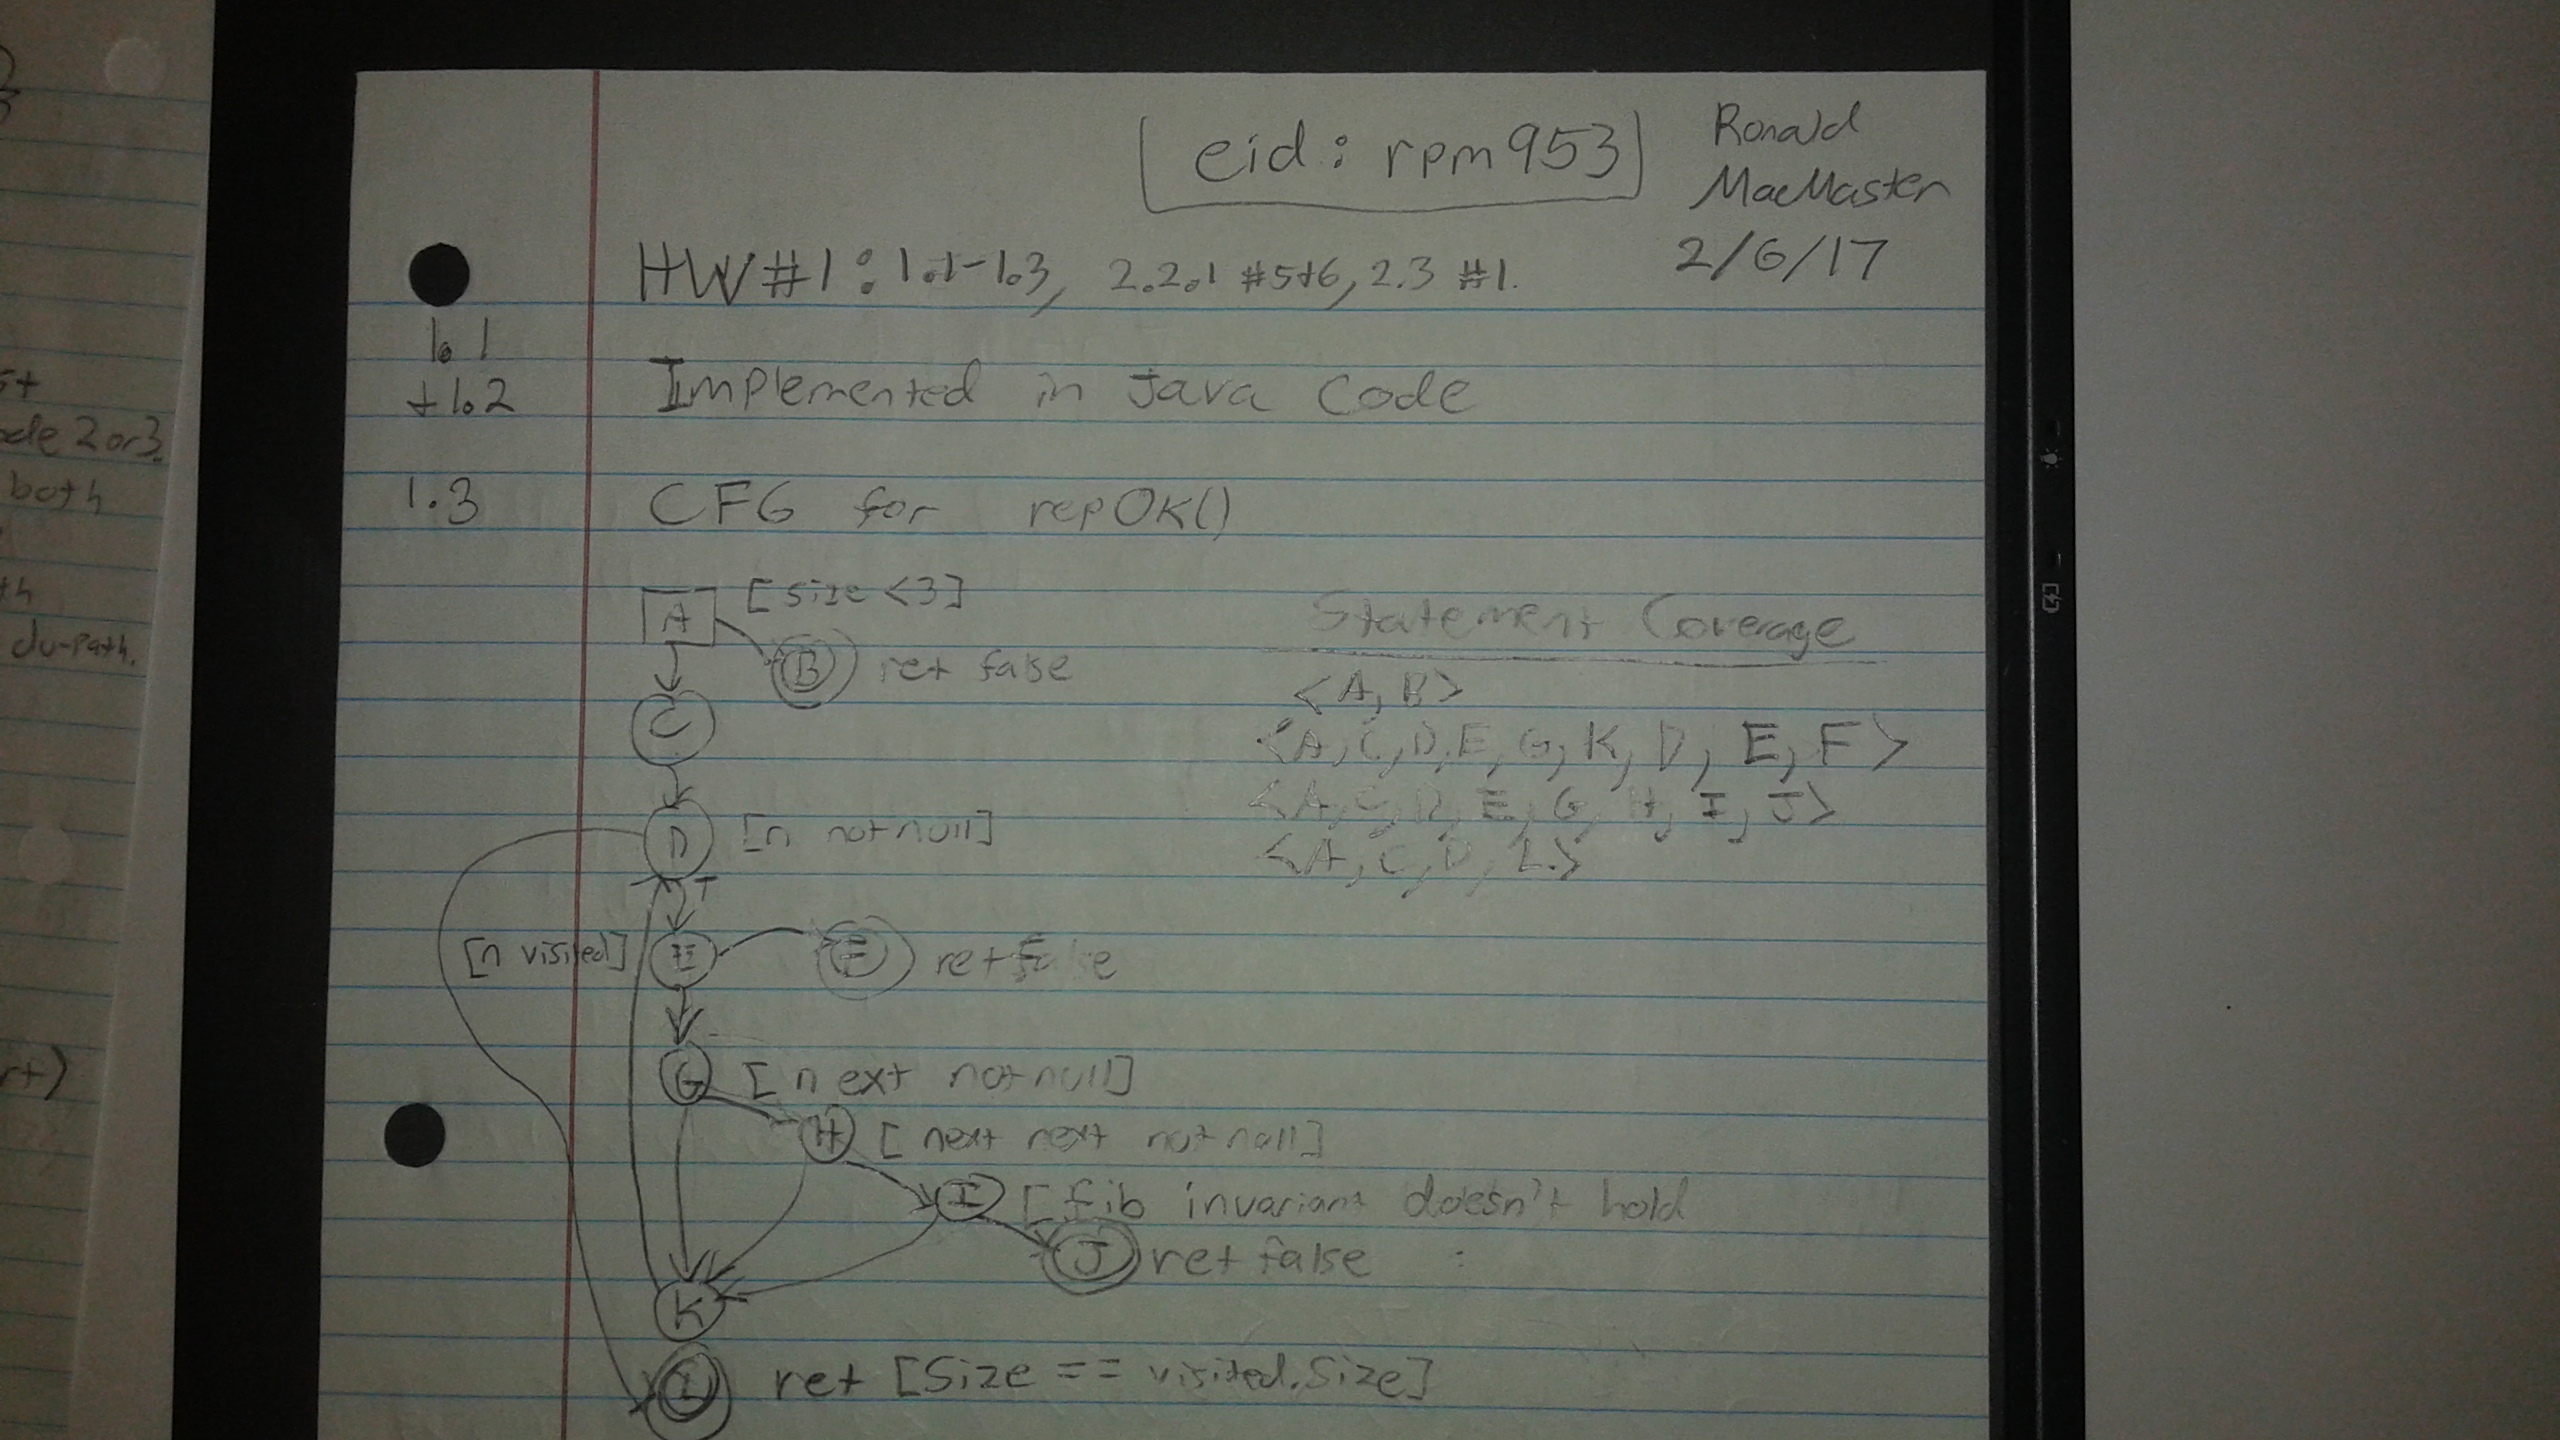 eid: rpm953
Ronald
MacMaster
2/6/17
HW#1: 1.1-1.3, 2.2.1 #5+6, 2.3 #1.
1.1
+1.2
Implemented in Java Code
1.3 CFG for repOK()
A [size <3]
B ret false
C
D [n not null]
T
[n visited] E F ret false
G [next not null]
H [next next not null]
I [fib invariant doesn't hold
J ret false
K
L ret [Size == visited.Size]
Statement Coverage
<A, B>
<A, C, D, E, G, K, D, E, F>
<A, C, D, E, G, H, I, J>
<A, C, D, L>
2 or 3.
both
du-path.